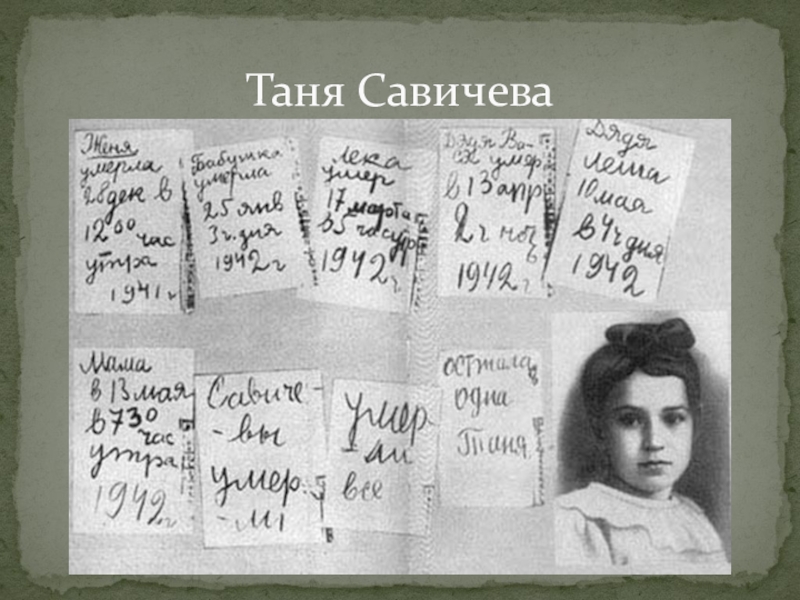 Таня Савичева
Женя
умерла
28 дек в
12 00 час
утра
1941 г
Бабушка
умерла
25 янв
3 ч. дня
1942 г
Лека
умер
17 марта
в 5 час утр
1942 г
Дядя Ва-
ся умер
в 13 апр
2 ч ноч
1942 г
Дядя
Леша
10 мая
в 4 ч дня
1942
Мама
в 13 мая
в 730
час
утра
1942 г
Савиче-
-вы
умер-
-ли
умер
-ли
все
осталась
одна
Таня